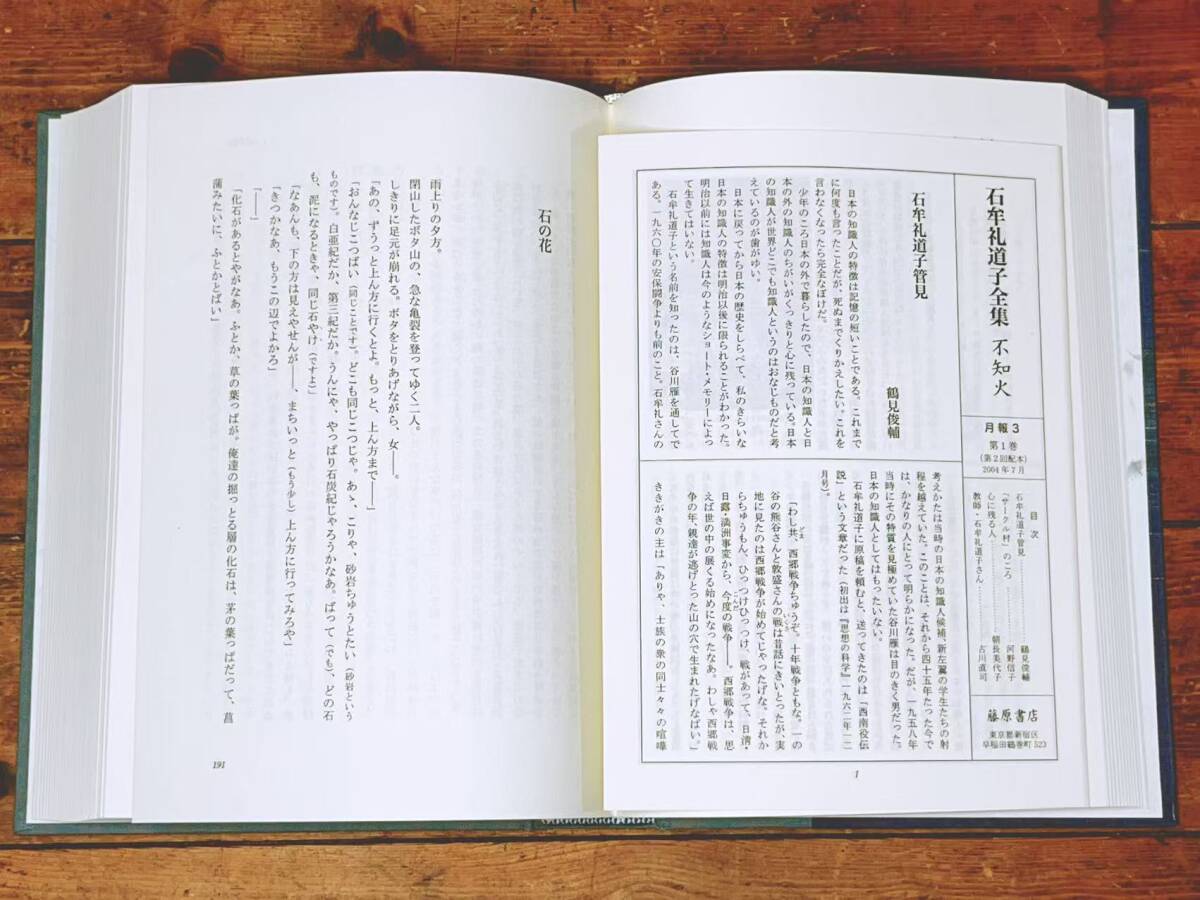 石牟礼道子全集 不知火
月報3
第1巻
(第2回配本)
2004年7月
目次
石牟礼道子管見…………鶴見俊輔
「サークル村」のころ…………河野信子
心に残る人…………朝長美代子
教師・石牟礼道子さん…………古川直司
藤原書店
東京都新宿区
早稲田鶴巻町523
石牟礼道子管見
鶴見俊輔
日本の知識人の特徴は記憶の短いことである。これまで
に何度も言ったことだが、死ぬまでくりかえしたい。これを
言わなくなったら完全なぼけだ。
少年のころ日本の外で暮らしたので、日本の知識人と日
本の外の知識人のちがいがくっきりと心に残っている。日本
の知識人が世界どこでも知識人というのはおなじものだと考
えているのが歯がゆい。
日本に戻ってから日本の歴史をしらべて、私のきらいな
日本の知識人の特徴は明治以後に限られることがわかった。
明治以前には知識人は今のようなショート・メモリーによっ
て生きてはいない。
石牟礼道子という名前を知ったのは、谷川雁を通してで
ある。一九六〇年の安保闘争よりも前のこと。石牟礼さんの
考えかたは当時の日本の知識人候補、新左翼の学生たちの射
程を越えていた。このことは、それから四十五年たった今で
は、かなりの人にとって明らかになった。だが、一九五八年
当時にその特質を見極めていた谷川雁は目のきく男だった。
日本の知識人としてはもったいない。
石牟礼道子に原稿を頼むと、送ってきたのは「西南役伝
説」という文章だった(初出は『思想の科学』一九六二年一二
月号)。
「わし共、西郷戦争ちゅうぞ。十年戦争ともな。一の
谷の熊谷さんと敦盛さんの戦は昔話にきいとったが、実
地に見たのは西郷戦争が始めてじゃったげな。それか
らちゅうもん、ひっつけひっつけ、戦があって、日清・
日露・満洲事変から、今度の戦争――。西郷戦争は、思
えば世の中の展くる始めになったなあ。わしゃ西郷戦
争の年、親達が逃げとった山の穴で生まれたげなばい。」
ききがきの主は「ありゃ、士族の衆の同士々々の喧嘩
1
石の花
雨上りの夕方。
閉山したボタ山の、急な亀裂を登ってゆく二人。
しきりに足元が崩れる。ボタをとりあげながら、女――。
「あの、ずうっと上ん方に行くとよ。もっと、上ん方まで――」
「おんなじこつばい(同じことです)。どこも同じこつじゃ。あゝ、こりゃ、砂岩ちゅうとたい(砂岩という
ものです)。白亜紀だか、第三紀だか。うんにゃ、やっぱり石炭紀じゃろうかなあ。ばって(でも)、どの石
も、泥になるときゃ、同じ石やけ(ですよ)」
「なあんも、下の方は見えやせんが――、まちいっと(もう少し)上ん方に行ってみろや」
「きつかなあ、もうこの辺でよかろ」
「――」
「化石があるとやがなあ。ふとか、草の葉っぱが。俺達の掘っとる層の化石は、茅の葉っぱだって、菖
蒲みたいに、ふとかとばい」
191